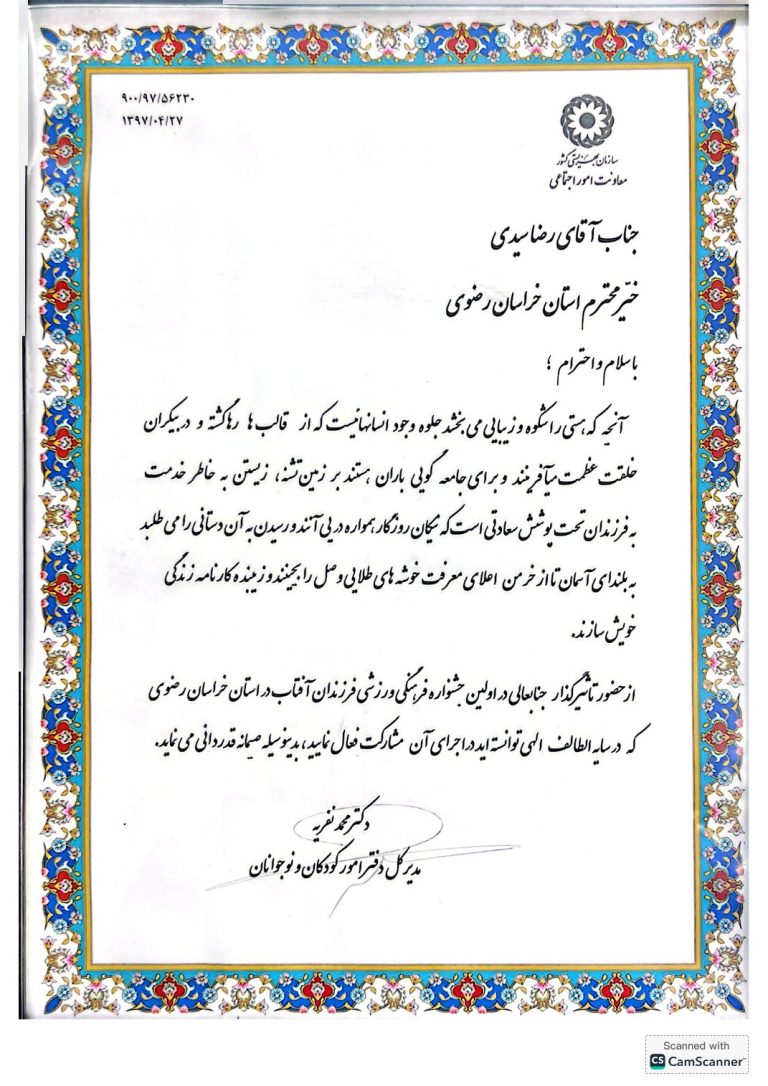 ۹۰۰/۹۷/۵۶۲۳۰
۱۳۹۷/۰۴/۲۷
سازمان بهزیستی کشور
معاونت امور اجتماعی
جناب آقای رضا سیدی
خیّر محترم استان خراسان رضوی
با سلام و احترام ؛
آنچه که هستی را شکوه و زیبایی می بخشد جلوه وجود انسانهائیست که از قالب ها رها گشته و در بیکران
خلقت عظمت میآفرینند و برای جامعه گویی باران هستند بر زمین تشنه، زیستن به خاطر خدمت
به فرزندان تحت پوشش سعادتی است که نیکان روزگار همواره در پی آنند و رسیدن به آن دستانی را می طلبد
به بلندای آسمان تا از خرمن اعلای معرفت خوشه های طلایی وصل را بچینند و زیبنده کارنامه زندگی
خویش سازند.
از حضور تاثیرگذار جنابعالی در اولین جشنواره فرهنگی ورزشی فرزندان آفتاب در استان خراسان رضوی
که در سایه الطاف الهی توانسته اید در اجرای آن مشارکت فعال نمایید، بدینوسیله صمیمانه قدردانی می نماید.
دکتر محمد نفریه
مدیر کل دفتر امور کودکان و نوجوانان
Scanned with
CS CamScanner